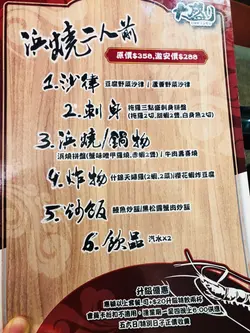 浜燒二人前
原價$358,滿安價$288
1.沙律 豆腐野菜沙律 / 蘆薈野菜沙律
2.刺身 拖羅三點盛刺身拼盤
(拖羅2切,胡蝦2隻,白身魚2切)
3.浜燒/鍋物
浜燒拼盤(蟹味噌甲羅燒,赤蝦2隻) / 牛肉壽喜燒
4.炸物 什錦天婦羅(2蝦,2菜)/櫻花蝦炸豆腐
5.炒飯 鰻魚炒飯/黑松露蟹肉炒飯
6.飲品 汽水x2
升級優惠